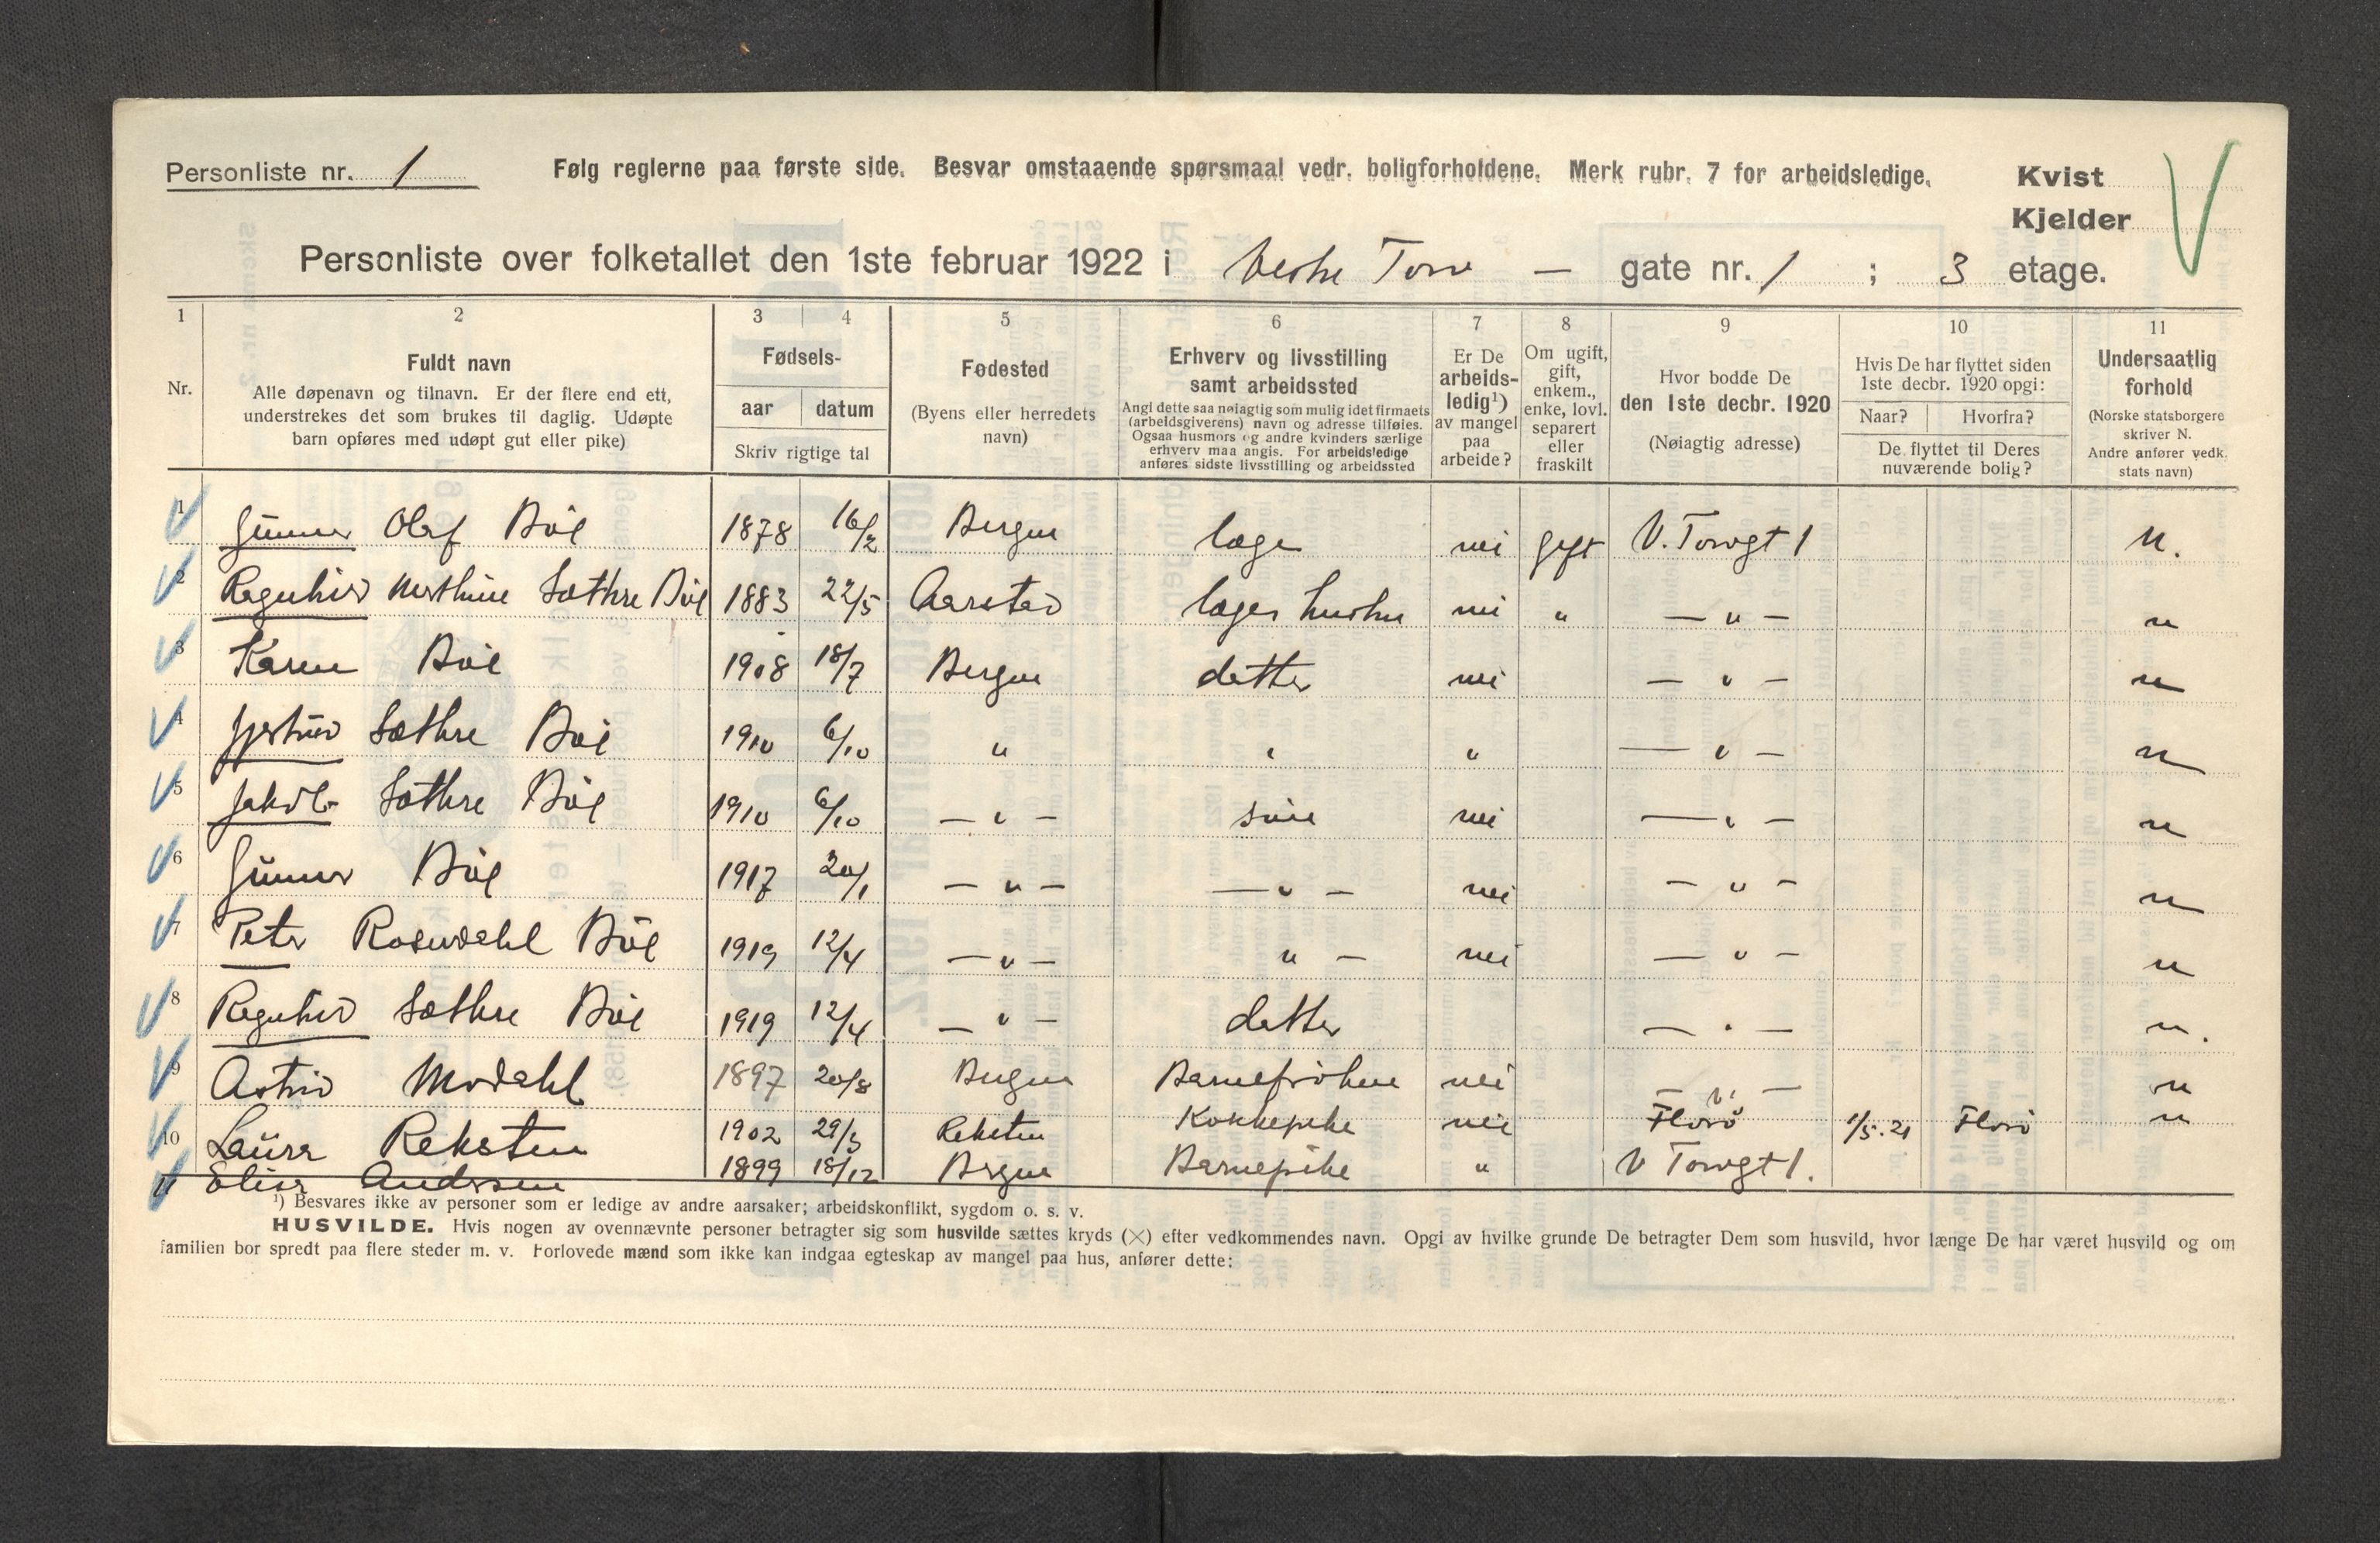 Personliste nr. 1 Følg reglerne paa første side. Besvar omstaaende spørsmaal vedr. boligforholdene. Merk rubr. 7 for arbeidsledige. Kvist
Kjelder
Personliste over folketallet den 1ste februar 1922 i Vestre Torv — gate nr. 1 ; 3 etage.
1 2 3 4 5 6 7 8 9 10 11
Nr.
Fuldt navn
Alle døpenavn og tilnavn. Er der flere end ett,
understrekes det som brukes til daglig. Udøpte
barn opføres med udøpt gut eller pike)
Fødsels-
aar datum
Skriv rigtige tal
Fødested
(Byens eller herredets
navn)
Erhverv og livsstilling
samt arbeidssted
Angi dette saa nøiagtig som mulig idet firmaets
(arbeidsgiverens) navn og adresse tilføies.
Ogsaa husmors og andre kvinders særlige
erhverv maa angis. For arbeidsledige
anføres sidste livsstilling og arbeidssted
Er De
arbeids-
ledig¹)
av mangel
paa
arbeide?
Om ugift,
gift,
enkem.,
enke, lovl.
separert
eller
fraskilt
Hvor bodde De
den 1ste decbr. 1920
(Nøiagtig adresse)
Hvis De har flyttet siden
1ste decbr. 1920 opgi:
Naar? Hvorfra?
De flyttet til Deres
nuværende bolig?
Undersaatlig
forhold
(Norske statsborgere
skriver N.
Andre anfører vedk.
stats navn)
1 Gunnar Olaf Bøe 1878 16/2 Bergen læge nei gift V. Torvgt 1 N.
2 Ragnhild Sæthre Bøe 1883 22/5 Aarstad læges hustru nei " — " — n
3 Karen Bøe 1908 18/7 Bergen datter nei — " — n
4 Gjertrud Sæthre Bøe 1910 6/10 " " " — " — n
5 Jakob Sæthre Bøe 1910 6/10 — " — søn nei — " — n
6 Gunnar Bøe 1917 20/1 — " — — " — nei — " — n
7 Peter Rosendahl Bøe 1919 12/4 — " — " — nei — " — n
8 Ragnhild Sæthre Bøe 1919 12/4 — " — datter — " — n.
9 Astrid Modahl 1897 20/8 Bergen Barnefrøken nei — " — n
10 Laura Reksten 1902 29/3 Reksten Kokkepike nei Florø 1/5.21 Florø n
Elise Andersen 1899 18/12 Bergen Barnepike " V Torvgt 1.
¹) Besvares ikke av personer som er ledige av andre aarsaker; arbeidskonflikt, sygdom o. s. v.
HUSVILDE. Hvis nogen av ovennævnte personer betragter sig som husvilde sættes kryds (×) efter vedkommendes navn. Opgi av hvilke grunde De betragter Dem som husvild, hvor længe De har været husvild og om
familien bor spredt paa flere steder m. v. Forlovede mænd som ikke kan indgaa egteskap av mangel paa hus, anfører dette: